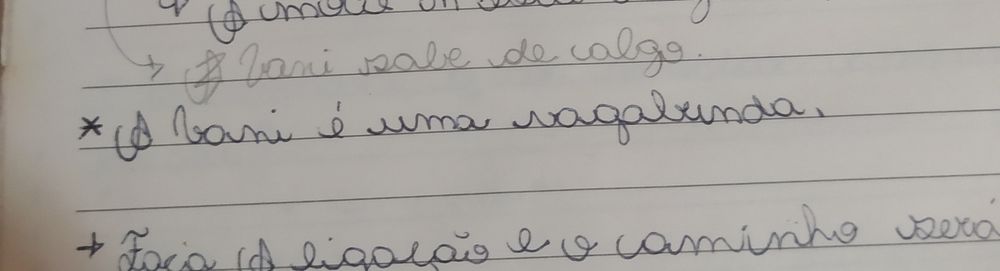 A Vani sabe de algo.
* A Vani é uma vagabunda.
→ Faça a ligação e o caminho será